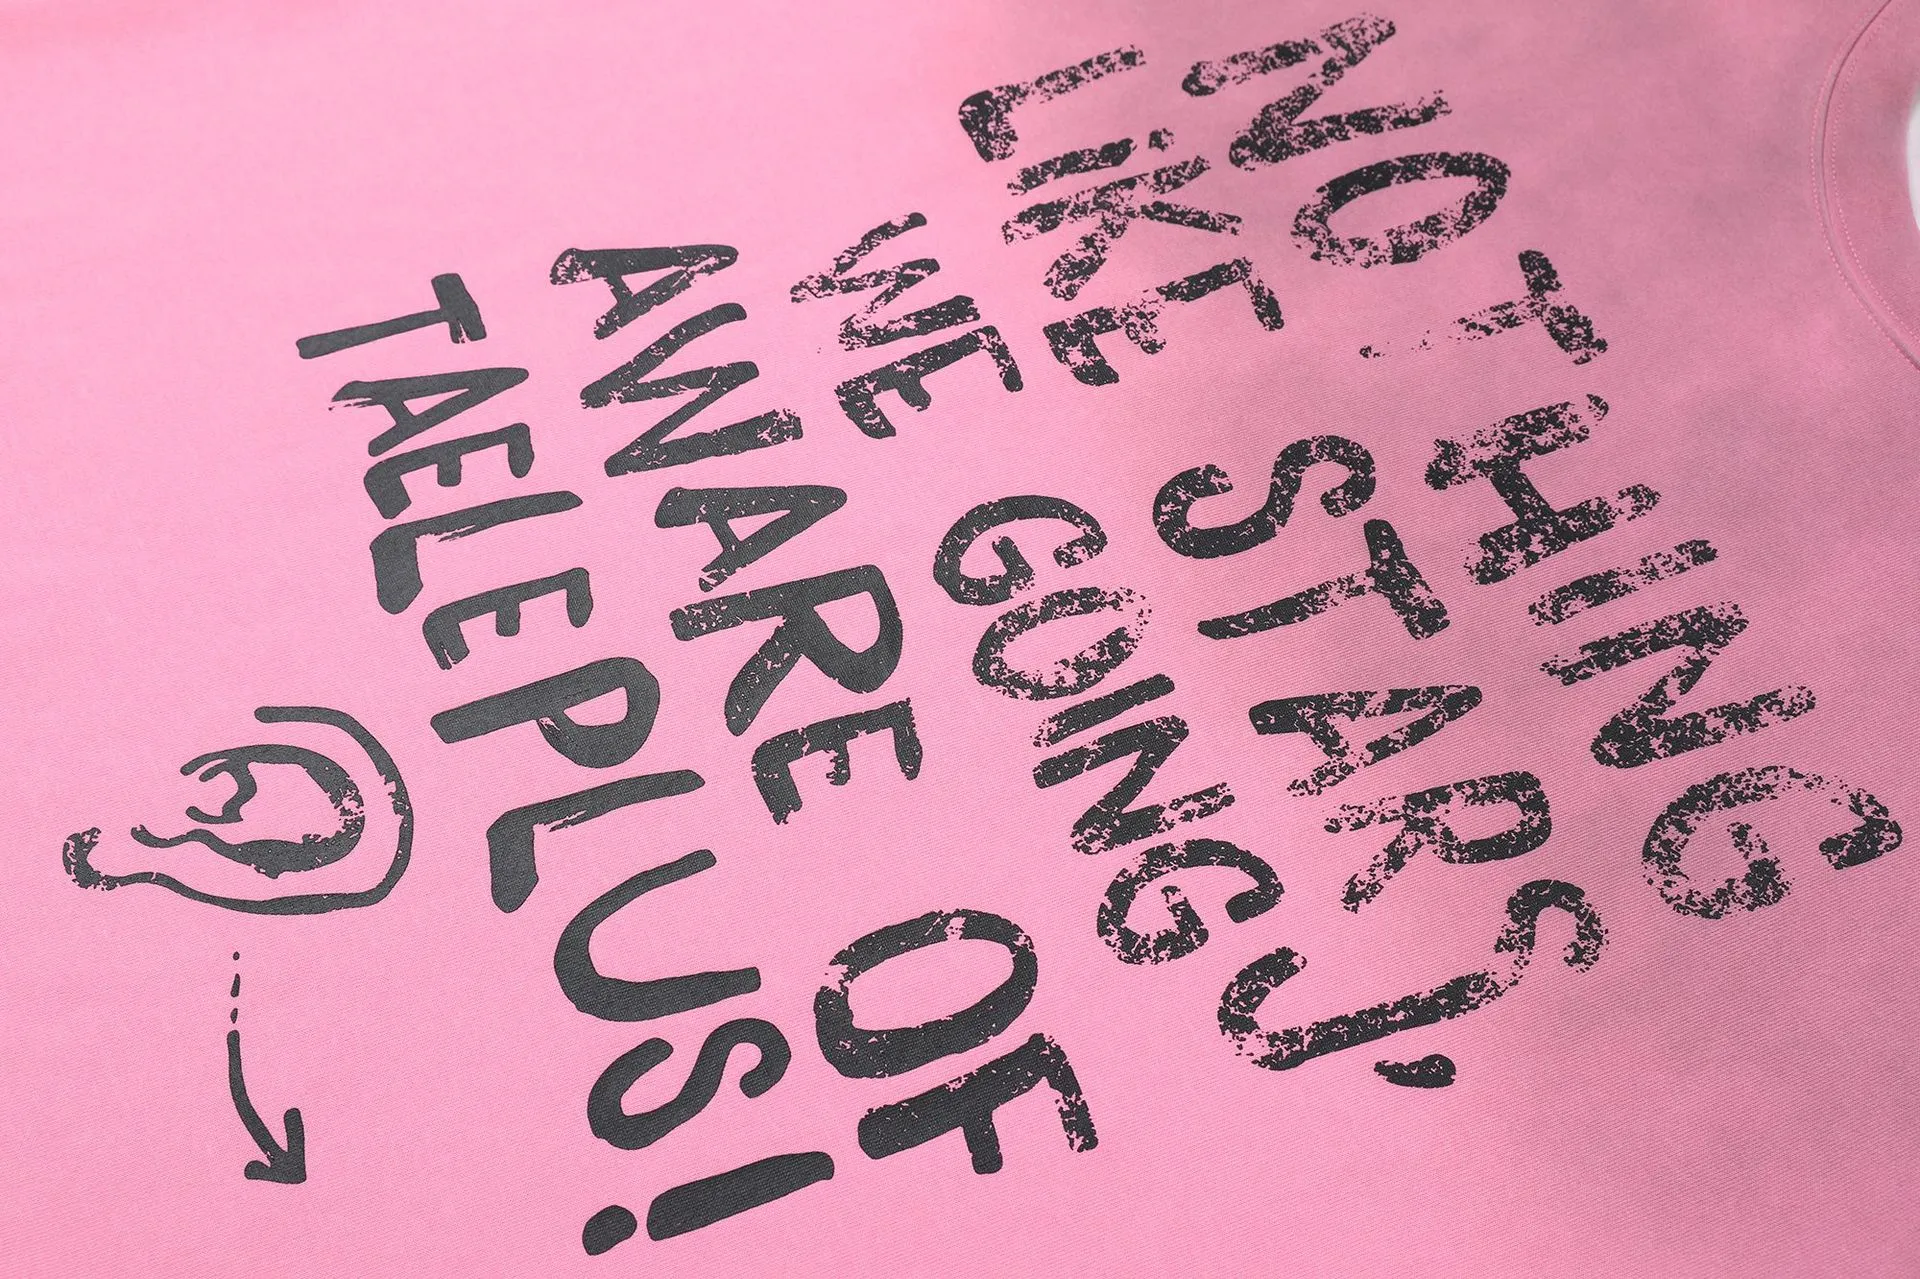 NOTHING
LiKE STARS,
WE GOING
AWARE OF
TAELEPLUS!